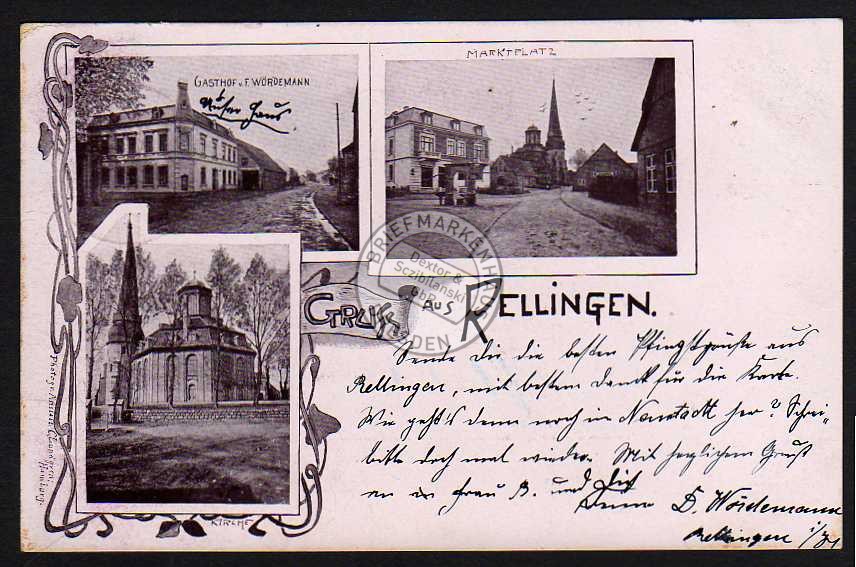 GASTHOF v. F. WÖRDEMANN
Unser Haus
MARKTPLATZ
BRIEFMARKENHAUS
Dextor &
Sczibilanski
GbR
GRUSS AUS RELLINGEN.
Sende Dir die besten Pfingstgrüße aus
Rellingen, mit bestem Dank für die Karte.
Wie geht's denn noch in Neustadt her? Schrei-
bitte doch mal wieder. Mit herzlichem Gruß
an Frau B. und Dich
D. Wördemann
Rellingen
KIRCHE
Hamburg.